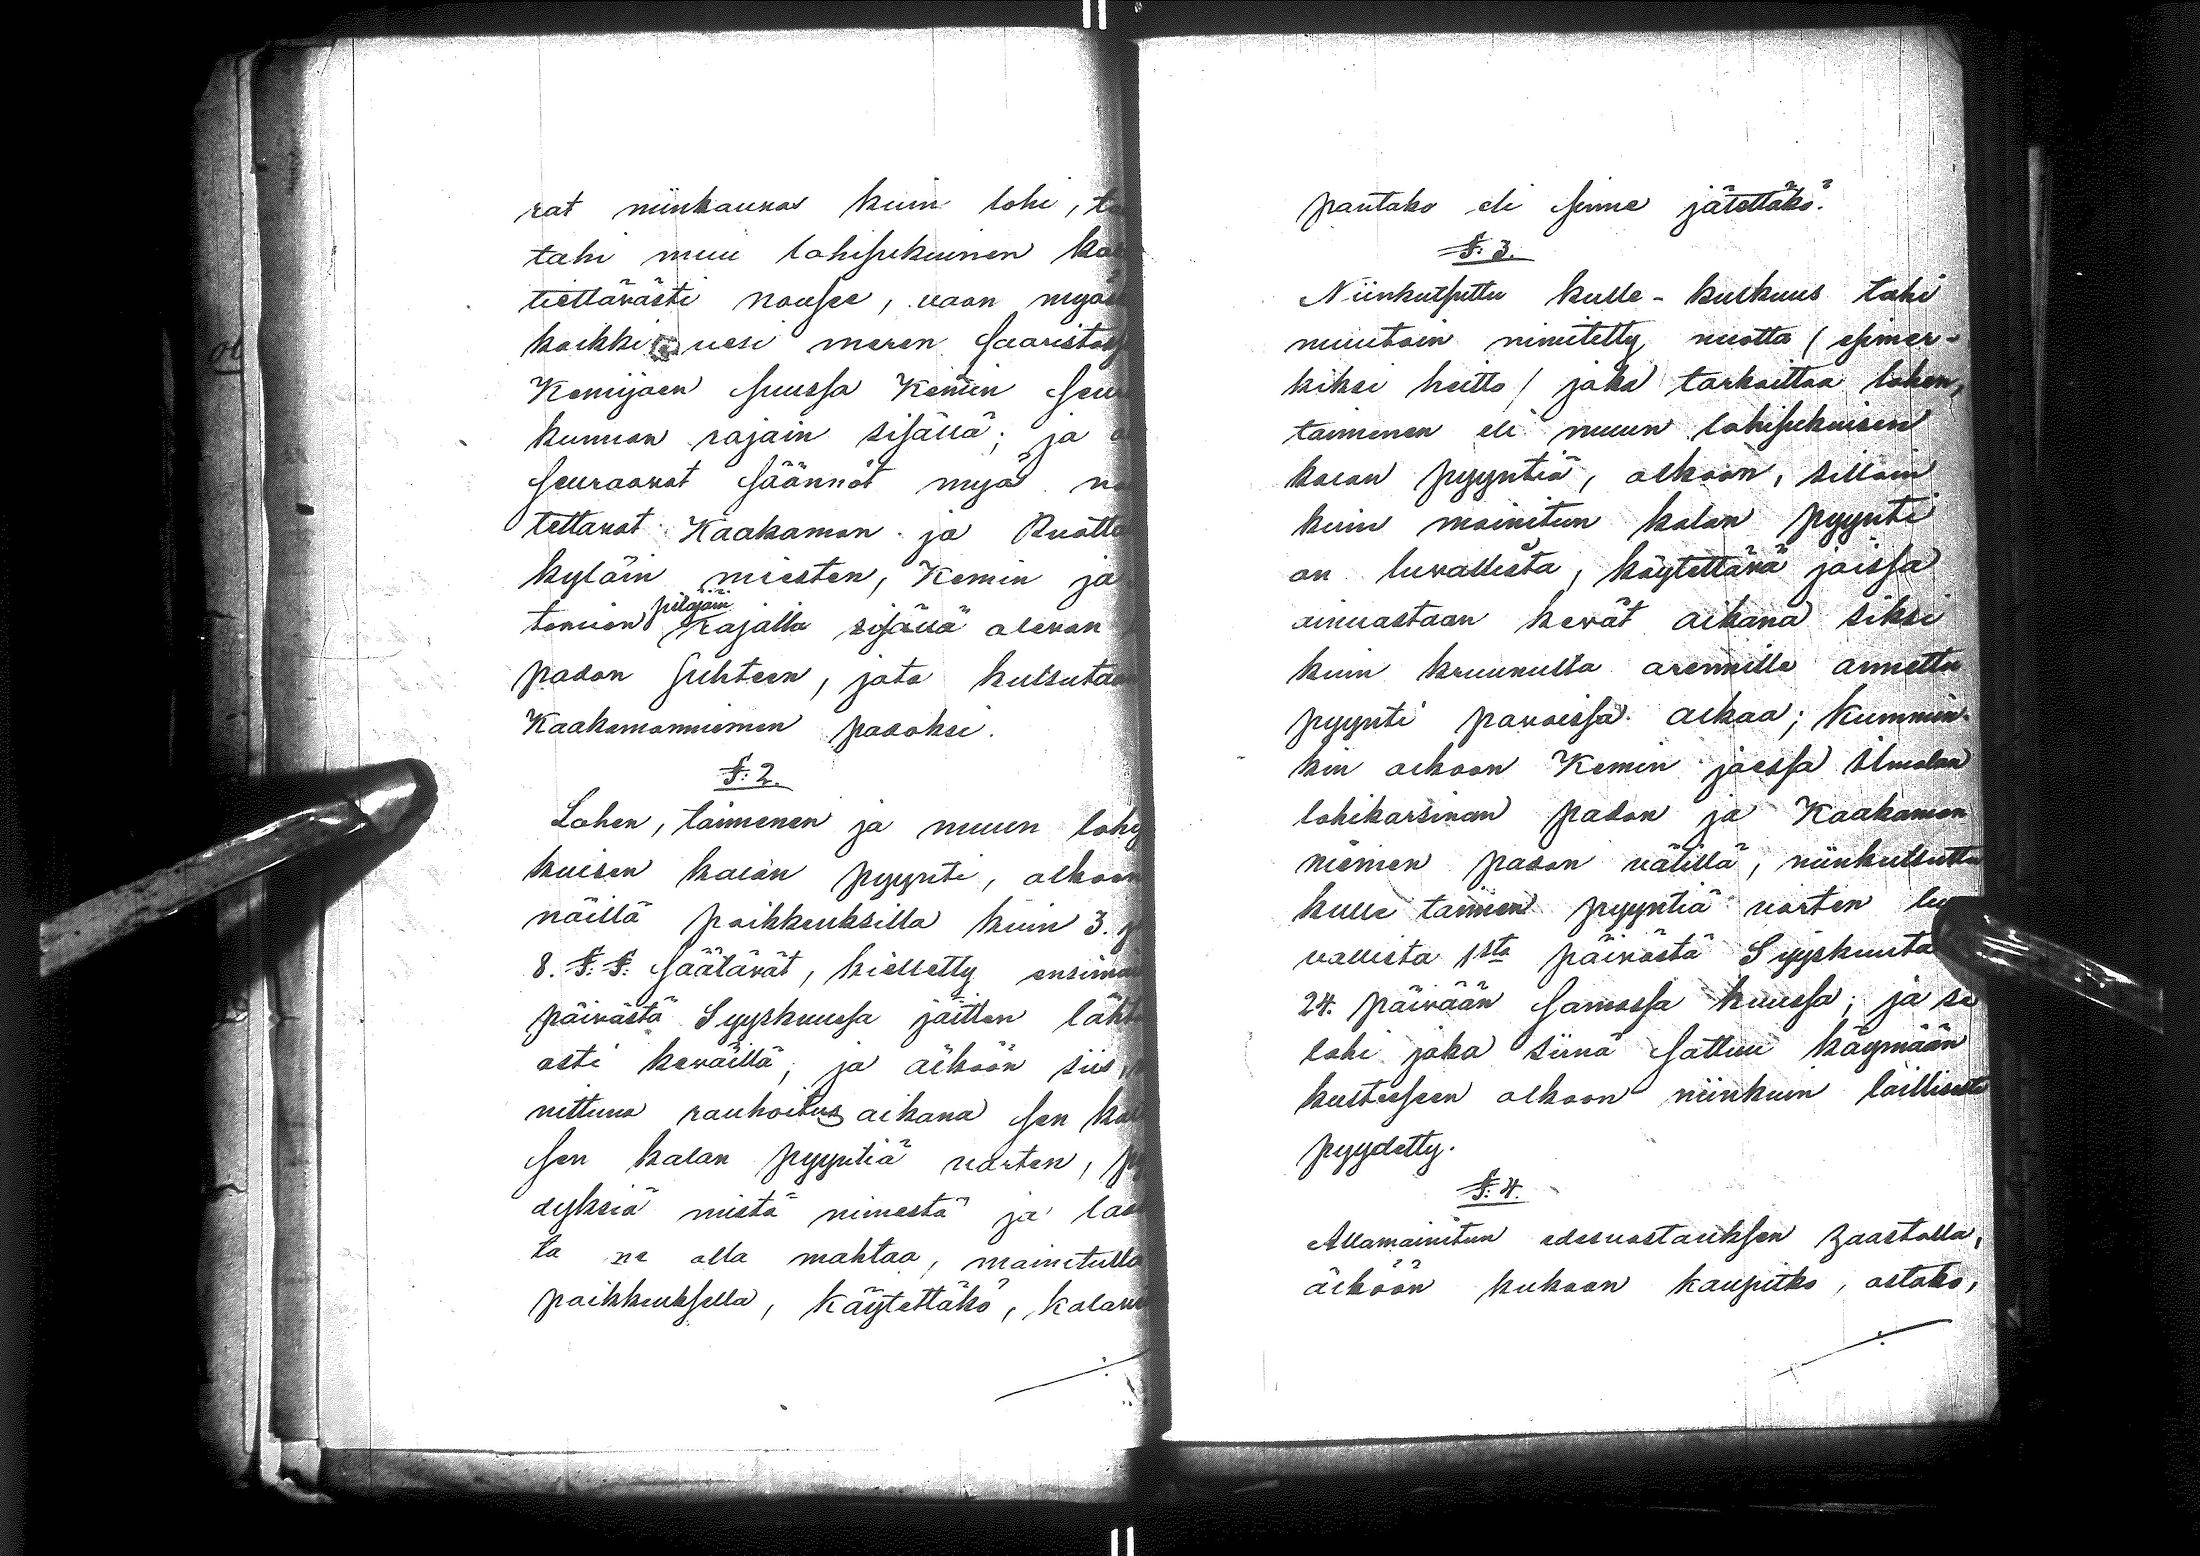 rat niinkauvas kuin lohi, ta
tahi muu lohisukuinen kal
tiettävästi nousee, vaan myös
kaikki vesi meren saaristos
Kemijoen suussa Kemin seu
kunnan rajain sisällä; ja
seuraavat säännöt myös no
tettavat Kaakamon ja Ruotta
kyläin miesten, Kemin ja
tornion pitäjäin rajalla sisällä olevan
padon suhteen, jota kutsutaan
Kaakamonniemen padoksi.
§: 2.
Lohen, taimenen ja muun lohi
kuisen kalan pyynti, olkoon
näillä poikkeuksilla kuin 3. j
8. §: §: säätävät, kielletty ensimä
päivästä Syyskuussa jäitten läht
asti keväillä, ja älköön siis,
nittuna rauhoitus aikana sen kal
sen kalan pyyntiä varten, py
dyksiä mistä nimestä ja laa
ta ne olla mahtaa, mainitulla
poikkeuksella, käytettäkö, kalan
pantako eli sinne jätettäkö.
§: 3.
Niinkutsuttu kulle-kulkuus tahi
muutoin nimitetty nuotta / esimer-
kiksi heitto / joka tarkoittaa lohen,
taimenen eli muun lohisukuisen
kalan pyyntiä, olkoon, silloin
kuin mainitun kalan pyynti
on luvallista, käytettävä joissa
ainuastaan kevät aikana siksi
kuin kruunulta arennille annettu
pyynti pavoissa alkaa; kummin-
kin olkoon Kemin joessa Ilmolan
lohikarsinan padon ja Kaakamon
niemen padon välillä, niinkutsuttu
kulle taimen pyyntiä varten lu
vallista 1sta päivästä Syyskuuta
24. päivään samassa kuussa; ja se
lohi joka siinä sattuu käymään
kulteeseen olkoon niinkuin laillisesti
pyydetty.
§: 4.
Allamainitun edesvastauksen haastolla,
älköön kukaan kaupitko, ostako,